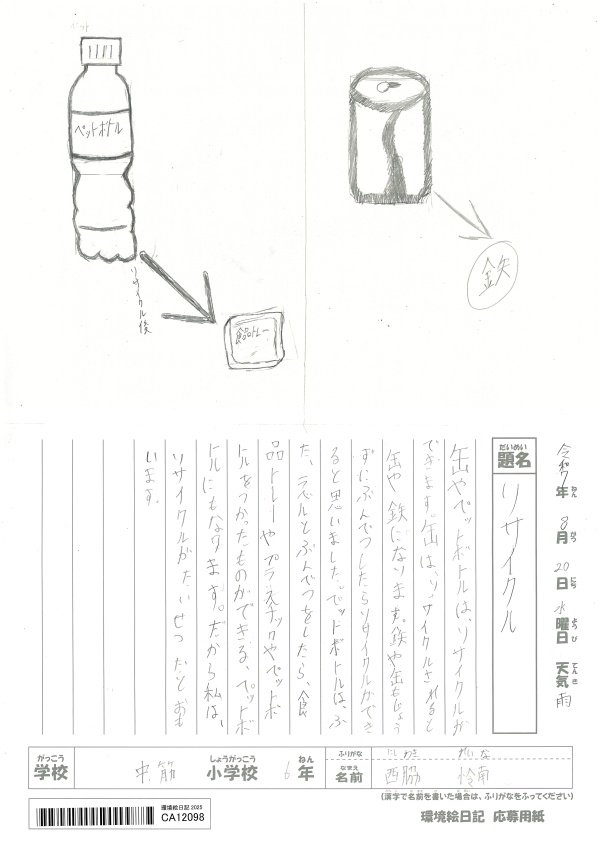 ペットボトル
リサイクル後
食品トレー
鉄
令和7年 8月 20日 水曜日 天気 雨
ねん がつ にち ようび てんき
だいめい
題名
リサイクル
缶やペットボトルは、リサイクルが
できます。缶は、リサイクルされると
缶や鉄になります。鉄や缶もじょう
ずにぶんべつしたらリサイクルができ
ると思いました。ペットボトルは、ふ
た、ラベルとぶんべつをしたら、食
品トレーやプラスチックやペットボ
トルをつかったものができる、ペットボ
トルにもなります。だから私は、
リサイクルがたいせつだとおも
います。
がっこう しょうがっこう ねん
学校 中筋 小学校 6年
ふりがな にしわき れいな
なまえ
名前 西脇 怜南
(漢字で名前を書いた場合は、ふりがなをふってください)
環境絵日記 2025
CA12098
環境絵日記 応募用紙